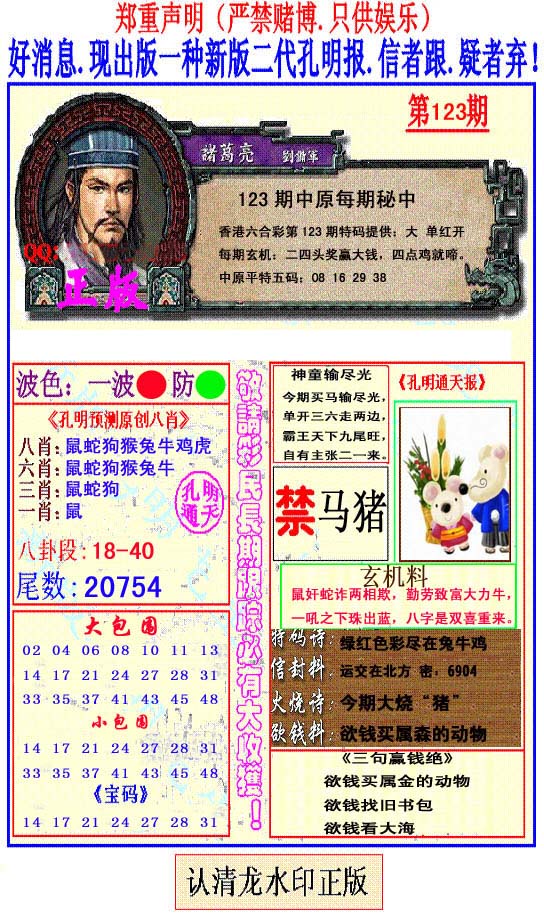 郑重声明（严禁赌博.只供娱乐）
好消息.现出版一种新版二代孔明报.信者跟.疑者弃！
第123期
諸葛亮 劉備軍
123 期中原每期秘中
香港六合彩第 123 期特码提供：大 单红开
每期玄机：二四头奖赢大钱，四点鸡就啼。
中原平特五码：08 16 29 38
QQ:
正版
波色：一波 防
《孔明预测原创八肖》
八肖：鼠蛇狗猴兔牛鸡虎
六肖：鼠蛇狗猴兔牛
三肖：鼠蛇狗
一肖：鼠
孔明
通天
八卦段：18-40
尾数：20754
大包围
02 04 06 08 10 11 13
14 17 21 24 27 28 31
33 35 37 41 43 45 48
小包围
14 17 21 24 27 28 31
33 35 37 41 43 45 48
《宝码》
14 17 21 24 27 28 31
敬請彩民長期跟踪必有大收獲！
神童输尽光
今期买马输尽光，
单开三六走两边，
霸王天下九尾旺，
自有主张二一来。
《孔明通天报》
禁 马猪
玄机料
鼠奸蛇诈两相欺，勤劳致富大力牛，
一吼之下珠出蓝，八字是双喜重来。
特码诗：绿红色彩尽在兔牛鸡
信封料：运交在北方 密：6904
火烧诗：今期大烧“猪”
欲钱料：欲钱买属森的动物
《三句赢钱绝》
欲钱买属金的动物
欲钱找旧书包
欲钱看大海
认清龙水印正版